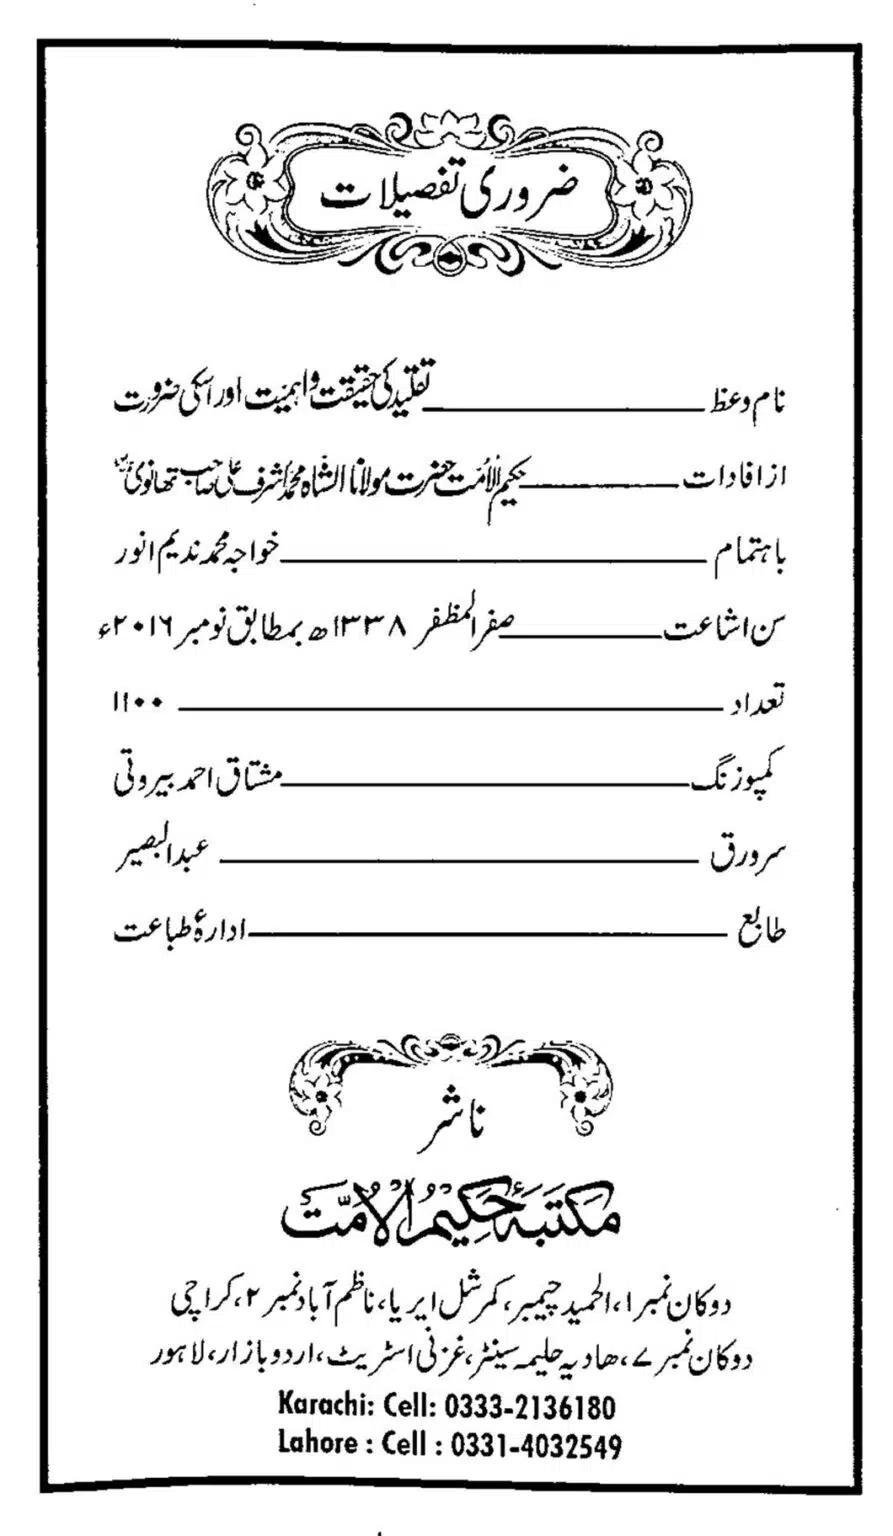 ضروری تفصیلات
نام وعظ تقلید کی حقیقت واہمیت اور اسکی ضرورت
از افادات حکیم الامت حضرت مولانا الشاہ محمد اشرف علی صاحب تھانویؒ
باہتمام خواجہ محمد ندیم انور
سن اشاعت صفر المظفر ۱۳۳۸ھ بمطابق نومبر ۲۰۱۶ء
تعداد ۱۱۰۰
کمپوزنگ مشتاق احمد بیروتی
سرورق عبدالبصیر
طابع ادارۂ طباعت
ناشر
مکتبۂ حکیم الامت
دوکان نمبر ۱، الحمید چیمبر، کمرشل ایریا، ناظم آباد نمبر ۲، کراچی
دوکان نمبر ۷، ھادیہ حلیمہ سینٹر، غزنی اسٹریٹ، اردو بازار، لاہور
Karachi: Cell: 0333-2136180
Lahore : Cell : 0331-4032549